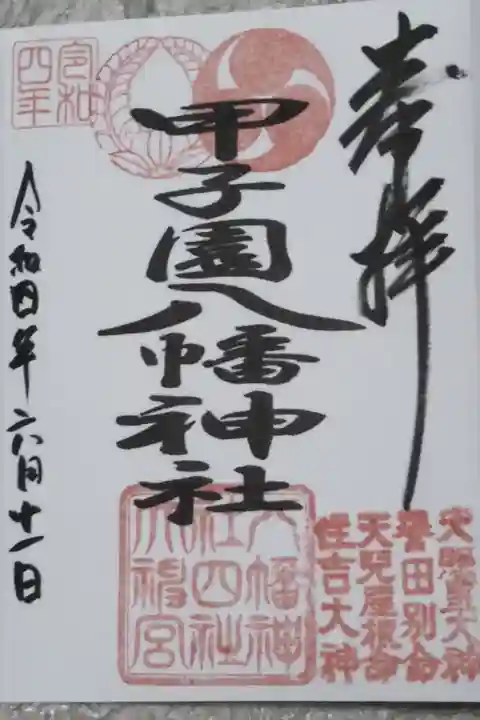 奉拝
甲子園八幡神社
令和四年六月十一日
令和
四年
八幡神
社四社
大神宮
天照皇大神
誉田別命
天児屋根命
住吉大神